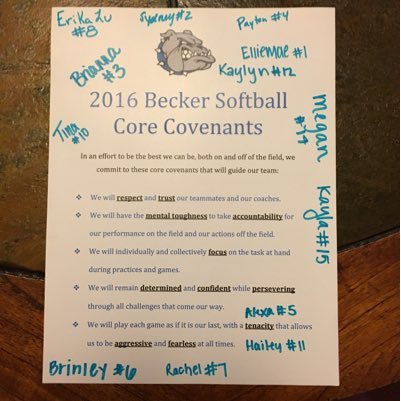 Erika Lu
#8
Sydney #2
Payton #4
Brianna
#3
Elliemae #1
Kaylyn #12
2016 Becker Softball
Core Covenants
Tina
#10
Megan
Kayla #15
In an effort to be the best we can be, both on and off of the field, we
commit to these core covenants that will guide our team:
❖ We will respect and trust our teammates and our coaches.
❖ We will have the mental toughness to take accountability for
our performance on the field and our actions off the field.
❖ We will individually and collectively focus on the task at hand
during practices and games.
❖ We will remain determined and confident while persevering
through all challenges that come our way.
Alexa #5
❖ We will play each game as if it is our last, with a tenacity that allows
us to be aggressive and fearless at all times.
Hailey #11
Brinley #6
Rachel #7